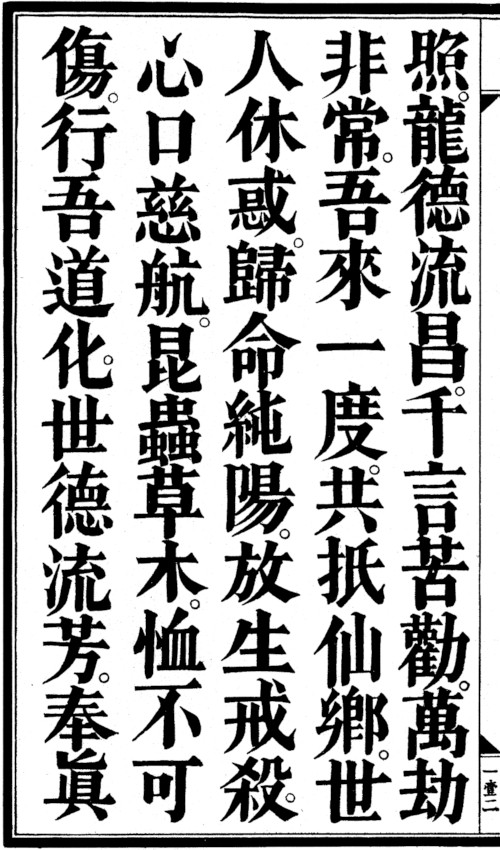 照。龍德流昌。千言苦勸。萬劫
非常。吾來一度。共抵仙鄉。世
人休惑。歸命純陽。放生戒殺。
心口慈航。昆蟲草木。恤不可
傷。行吾道化。世德流芳。奉眞
一壹二